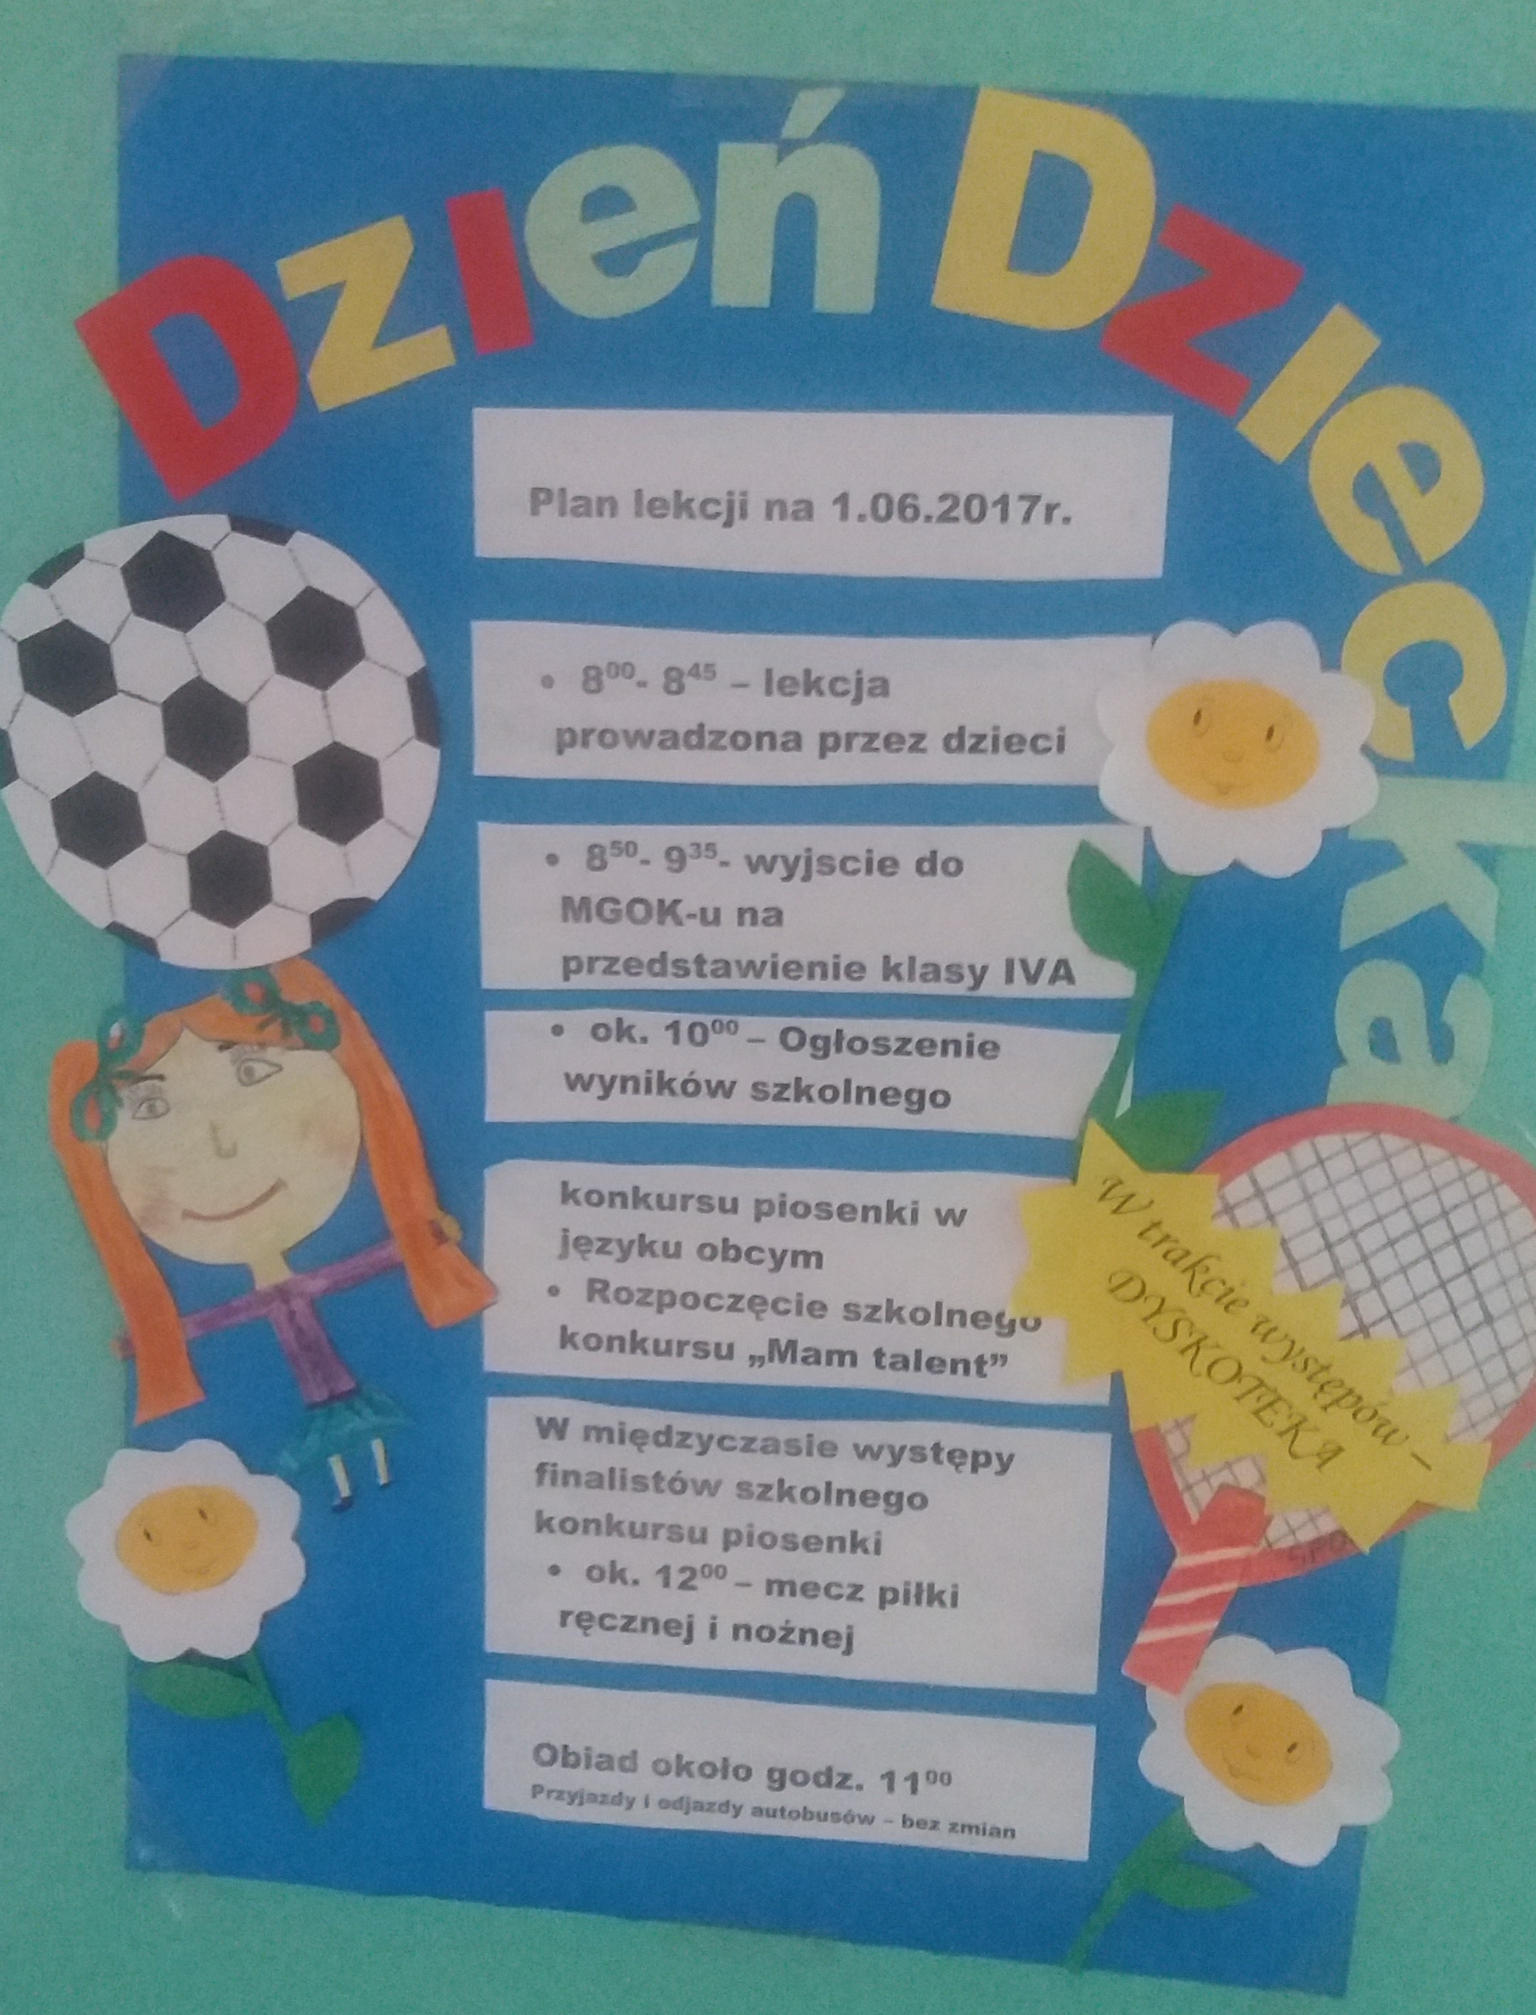 Dzień Dziecka
Plan lekcji na 1.06.2017r.
• 8⁰⁰- 8⁴⁵ – lekcja
prowadzona przez dzieci
• 8⁵⁰- 9³⁵- wyjscie do
MGOK-u na
przedstawienie klasy IVA
• ok. 10⁰⁰ – Ogłoszenie
wyników szkolnego
konkursu piosenki w
języku obcym
• Rozpoczęcie szkolnego
konkursu „Mam talent”
W trakcie występów –
DYSKOTEKA
W międzyczasie występy
finalistów szkolnego
konkursu piosenki
• ok. 12⁰⁰ – mecz piłki
ręcznej i nożnej
Obiad około godz. 11⁰⁰
Przyjazdy i odjazdy autobusów – bez zmian